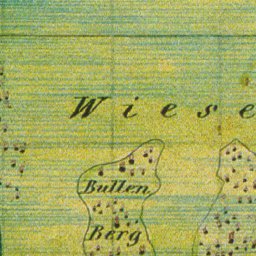 Wiese
Bullen
Berg